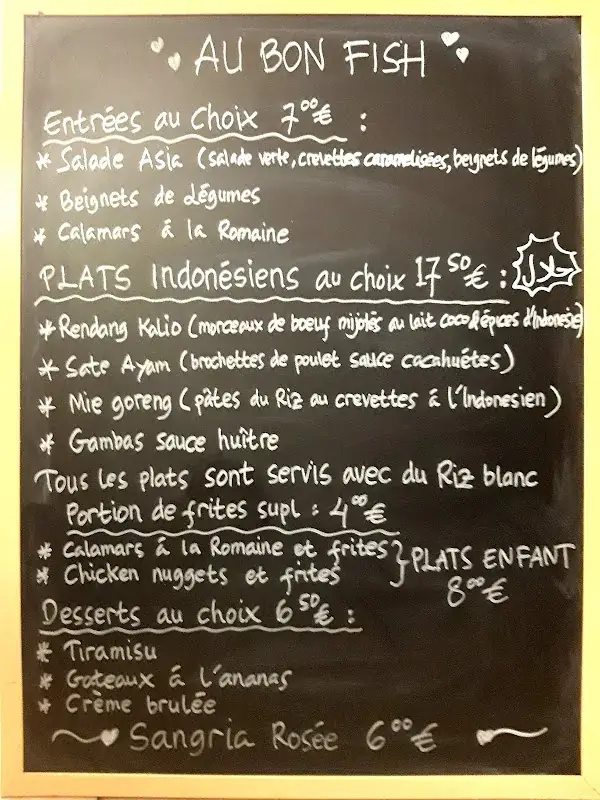 AU BON FISH
Entrées au Choix 7⁰⁰€ :
* Salade Asia (salade verte, crevettes caramelisées, beignets de légumes)
* Beignets de Légumes
* Calamars á la Romaine
PLATS Indonésiens au choix 17⁵⁰€ : حلال
* Rendang Kalio (morceaux de boeuf mijotés au lait coco & épices d'Indonesie)
* Sate Ayam (brochettes de poulet sauce cacahuétes)
* Mie goreng (pâtes du Riz au crevettes á l'Indonesien)
* Gambas sauce huître
Tous les plats sont servis avec du Riz blanc
Portion de frites supl : 4⁰⁰€
* Calamars á la Romaine et frites
* Chicken nuggets et frites
} PLATS ENFANT
8⁰⁰€
Desserts au choix 6⁵⁰€ :
* Tiramisu
* Gateaux á l'ananas
* Crème brulée
Sangria Rosée 6⁰⁰€